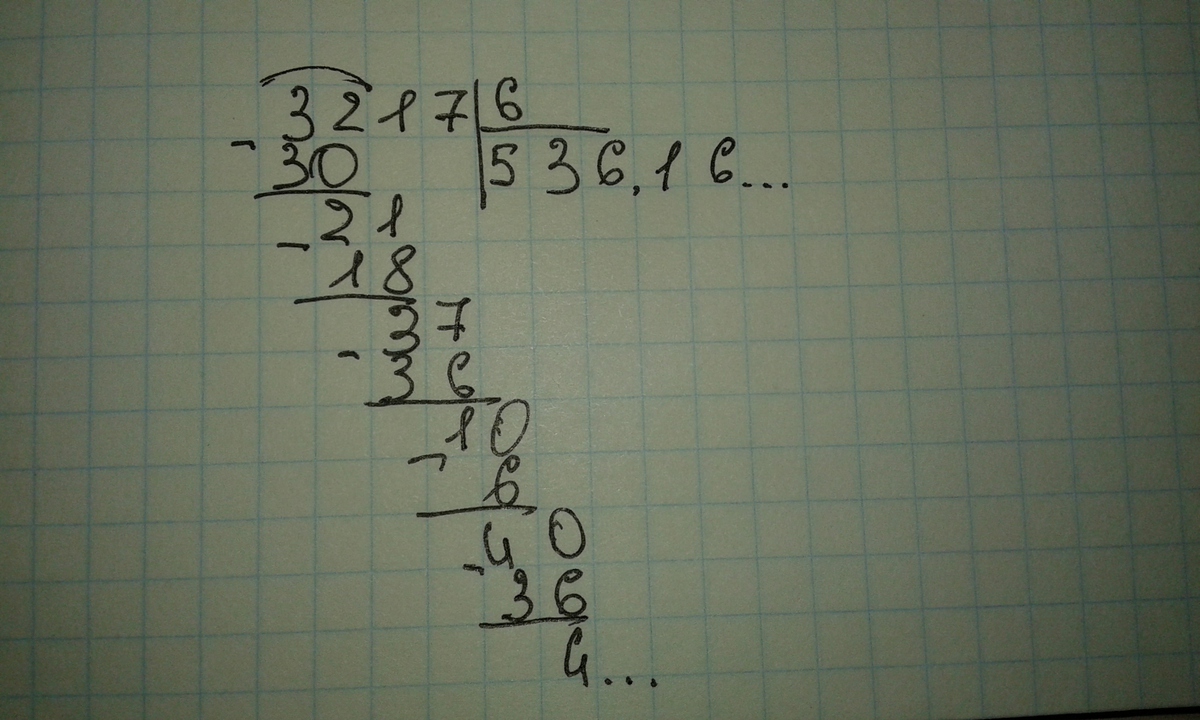 3217|6
- 30 |536,16...
- 21
18
- 37
36
10
- 6
40
- 36
4...